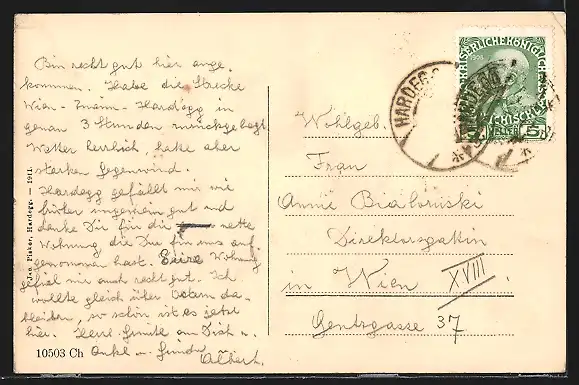 Bin recht gut hier ange-
kommen. Habe die Strecke
Wien - Znaim - Hardegg in
genau 3 Stunden zurückgelegt
Wetter herrlich, hatte aber
starken Gegenwind.
Hardegg gefällt mir wie
früher ungemein gut und
danke Dir für die nette
Wohnung die Du für uns auf-
genommen hast. Eure Wohnung
gefiel mir auch recht gut. Ich
wollte gleich über Ostern da-
bleiben, so schön ist es jetzt
hier. Herzl. Grüße an Dich u.
Onkel u. Albert.
10503 Ch
Joh. Fisker, Hardegg. — 1911.
KAISERLICHE KÖNIGLICHE
1908
5
HARDEGG
Wohlgeb.
Frau
Anna Bialonski
Direktorsgattin
in Wien XVIII
Gentzgasse 37